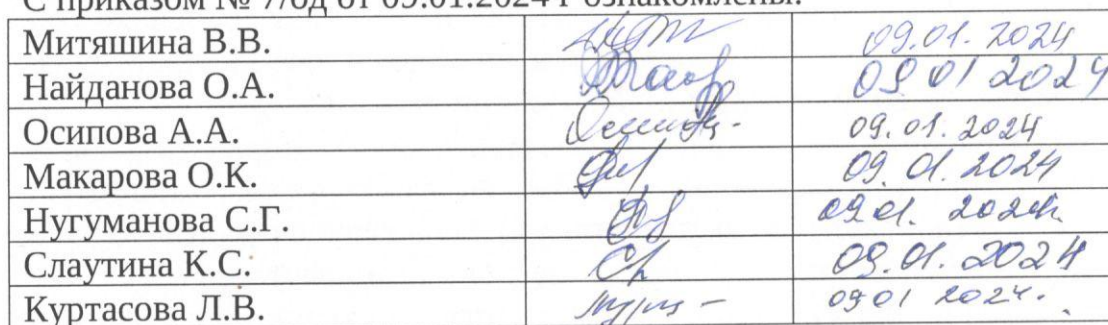 С приказом № 7/од от 09.01.2024 г ознакомлены:
Митяшина В.В. 09.01.2024
Найданова О.А. 09 01 2024
Осипова А.А. 09.01.2024
Макарова О.К. 09.01.2024
Нугуманова С.Г. 09.01.2024
Слаутина К.С. 09.01.2024
Куртасова Л.В. 09 01 2024.